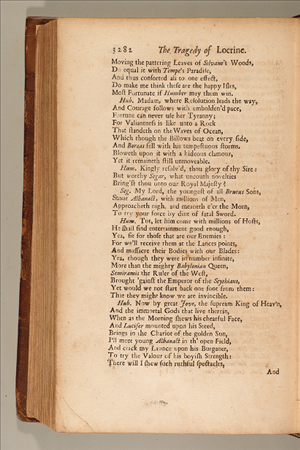 3282 The Tragedy of Locrine.
Moving the pattering Leaves of Silvane's Woods,
Do equal it with Tempe's Paradise,
And thus conforted all to one effect,
Do make me think these are the happy Isles,
Most Fortunate if Humber may them win.
Hub. Madam, where Resolution leads the way,
And Courage follows with imbolden'd pace,
Fortune can never use her Tyranny;
For Valiantness is like unto a Rock
That standeth on the Waves of Ocean,
Which though the Billows beat on every side,
And Boreas fell with his tempestuous storms,
Bloweth upon it with a hideous clamour,
Yet it remaineth still unmoveable.
Hum. Kingly resolv'd, thou glory of thy Sire:
But worthy Segar, what uncouth novelties
Bring'st thou unto our Royal Majesty?
Seg. My Lord, the youngest of all Brutus Sons,
Stout Albanact, with millions of Men,
Approacheth nigh, and meaneth e'er the Morn,
To try your force by dint of fatal Sword.
Hum. Tut, let him come with millions of Hosts,
He shall find entertainment good enough,
Yea, fit for those that are our Enemies:
For we'll receive them at the Lances points,
And massacre their Bodies with our Blades:
Yea, though they were in number infinite,
More than the mighty Babylonian Queen,
Semiramis the Ruler of the West,
Brought 'gainst the Emperor of the Scythians,
Yet would we not start back one foot from them:
That they might know we are invincible.
Hub. Now by great Jove, the supream King of Heav'n,
And the immortal Gods that live therein,
When as the Morning shews his chearful Face,
And Lucifer mounted upon his Steed,
Brings in the Chariot of the golden Sun,
I'll meet young Albanact in th' open Field,
And crack my Launce upon his Burganet,
To try the Valour of his boyish Strength:
There will I shew such ruthful spectacles,
And